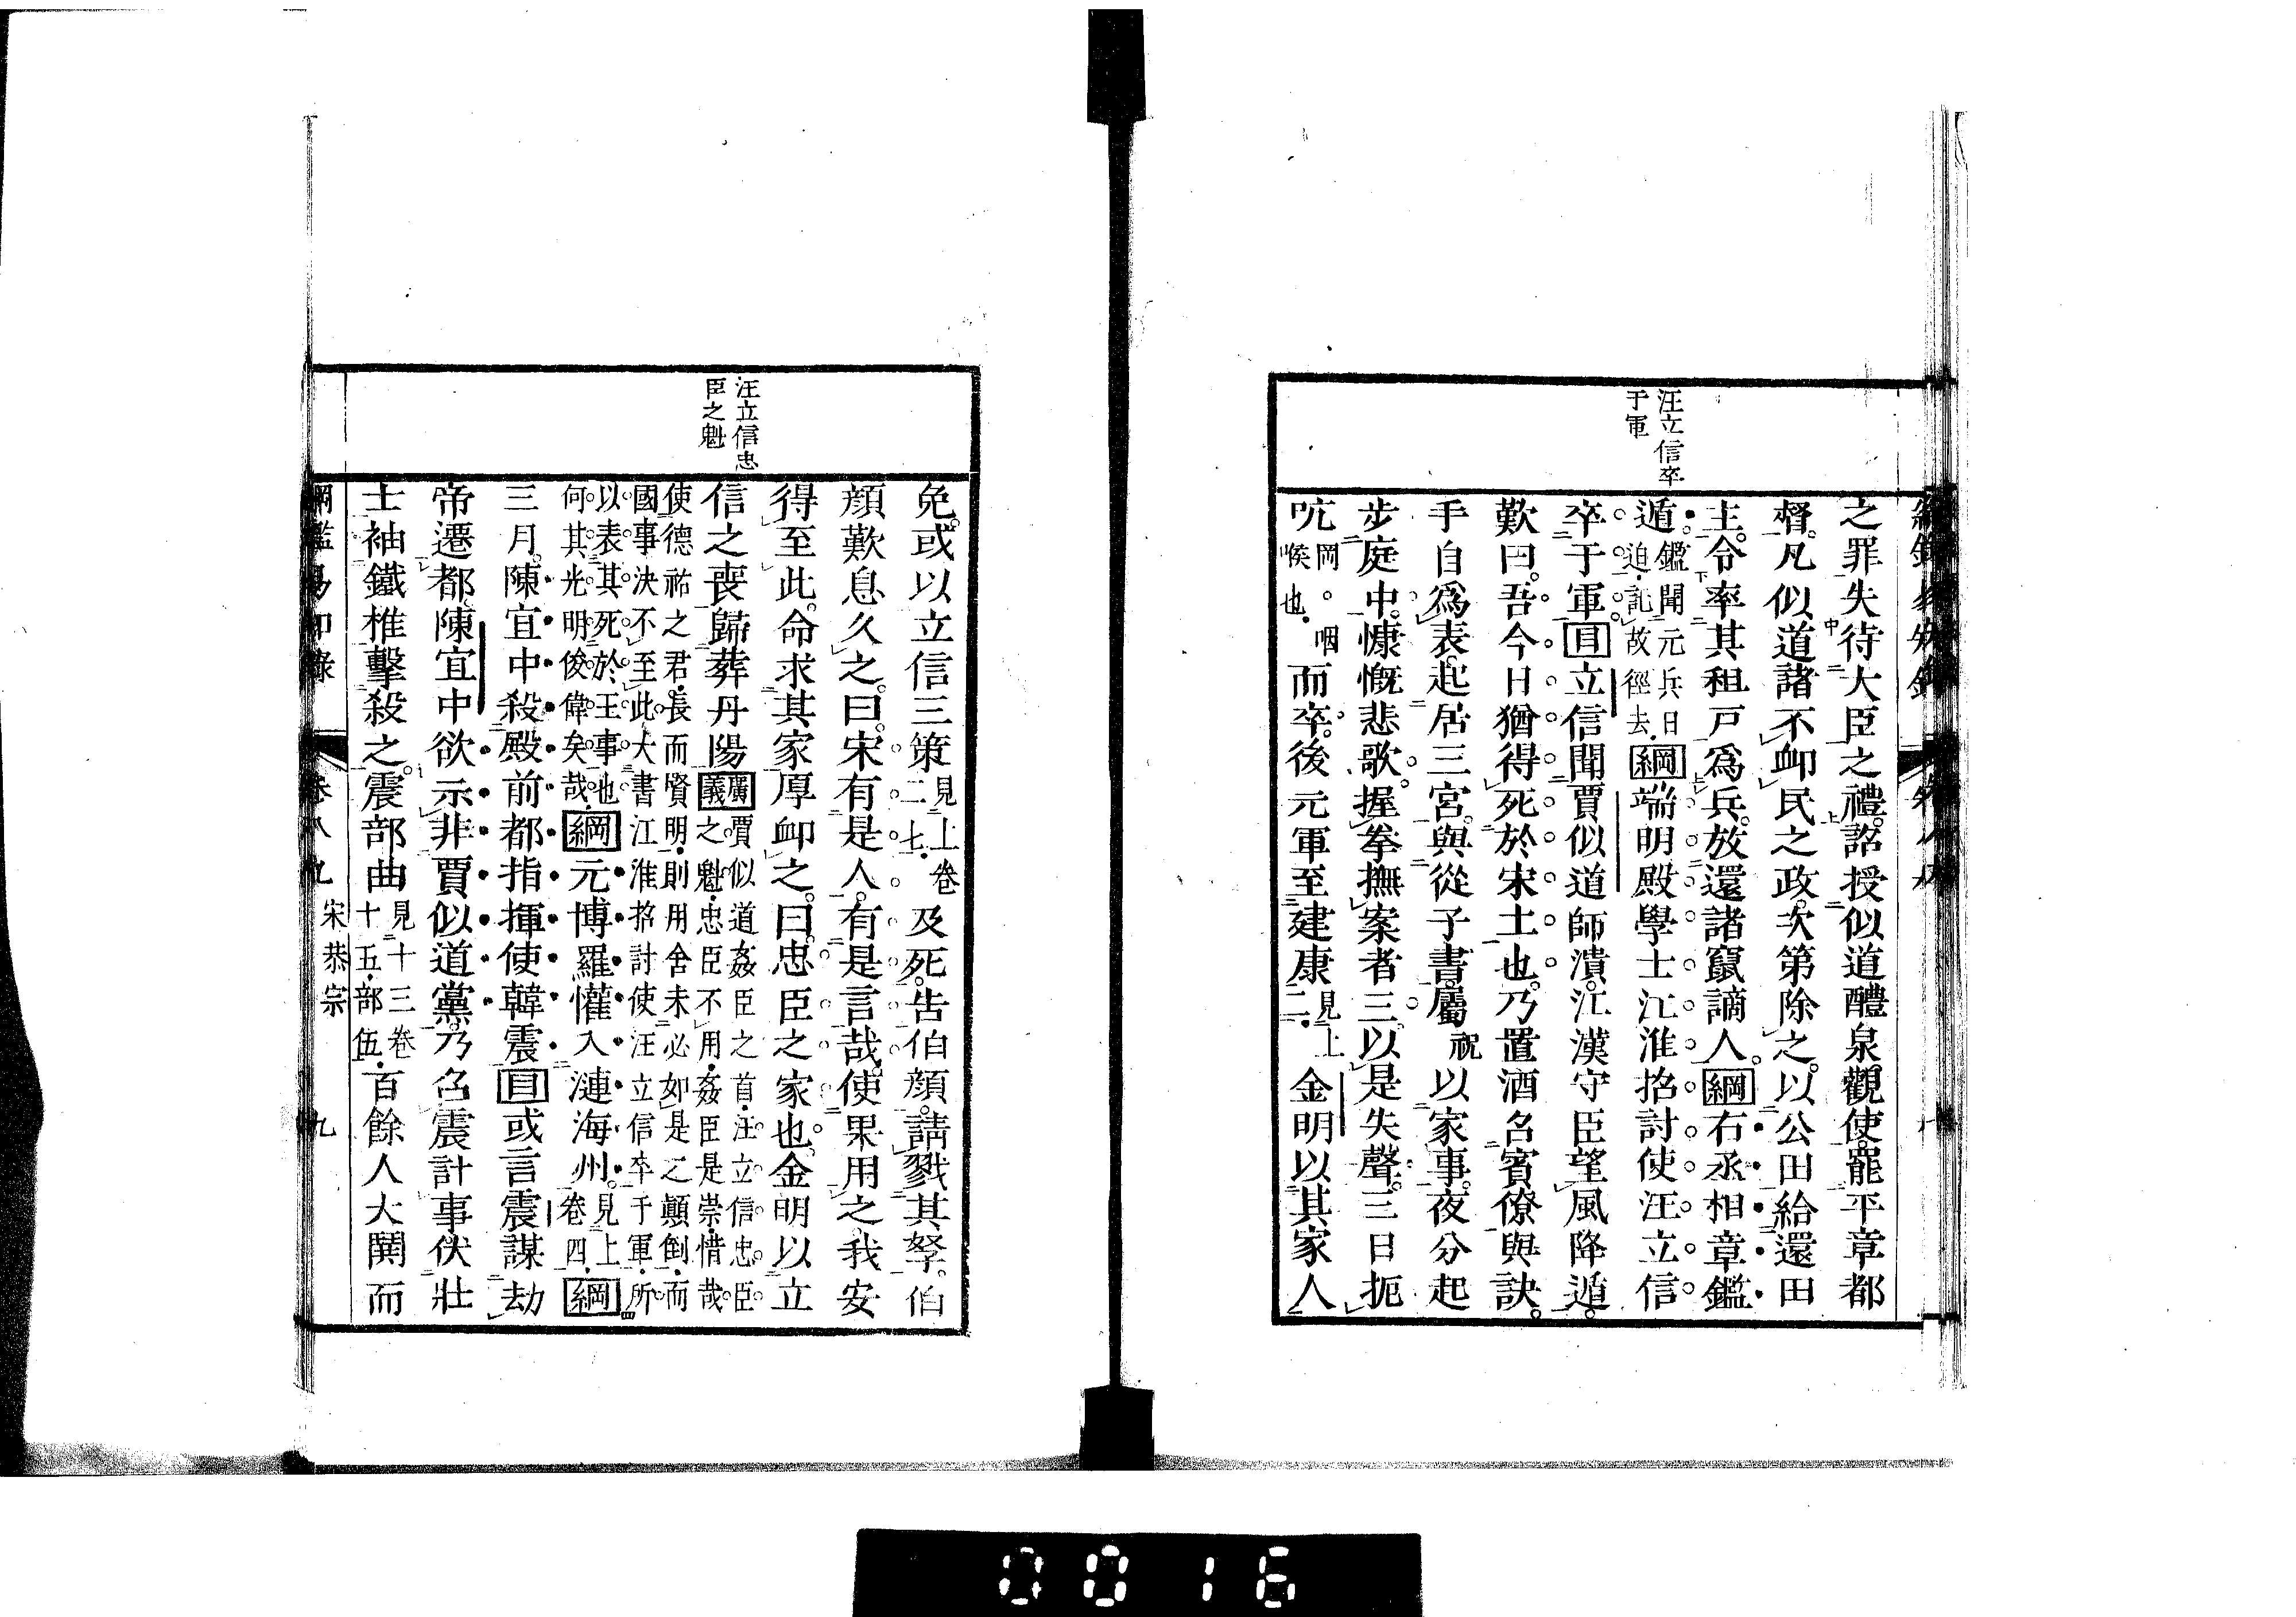 汪立信卒
于軍
之罪失待大臣之禮詔授似道醴泉觀使罷平章都
督凡似道諸不卹民之政次第除之以公田給還田
主令率其租戸爲兵放還諸竄謫人綱右丞相章鑑
遁鑑聞元兵日迫託故徑去綱端明殿學士江淮招討使汪立信
卒于軍目立信聞賈似道師潰江漢守臣望風降遁
歎曰吾今日猶得死於宋土也乃置酒召賓僚與訣
手自爲表起居三宮與從子書屬祝以家事夜分起
步庭中慷慨悲歌握拳撫案者三以是失聲三日扼
吭岡咽喉也而卒後元軍至建康見上二金明以其家人
汪立信忠
臣之魁
免或以立信三策見上卷二七及死告伯顔請戮其孥伯
顔歎息久之曰宋有是人有是言哉使果用之我安
得至此命求其家厚卹之曰忠臣之家也金明以立
信之喪歸葬丹陽廣義賈似道姦臣之首汪立信忠臣
之魁忠臣不用姦臣是崇惜哉
使德祐之君長而賢明則用舍未必如是之顚倒而
國事決不至此大書江淮招討使汪立信卒于軍所
以表其死於王事也
何其光明俊偉矣哉綱元博羅懽入漣海州見上卷四綱
三月陳宜中殺殿前都指揮使韓震目或言震謀劫
帝遷都陳宜中欲示非賈似道黨乃召震計事伏壯
士袖鐵椎擊殺之震部曲見十三卷十五部伍百餘人大鬨而
綱鑑易知錄 卷八九 宋恭宗 九
0016